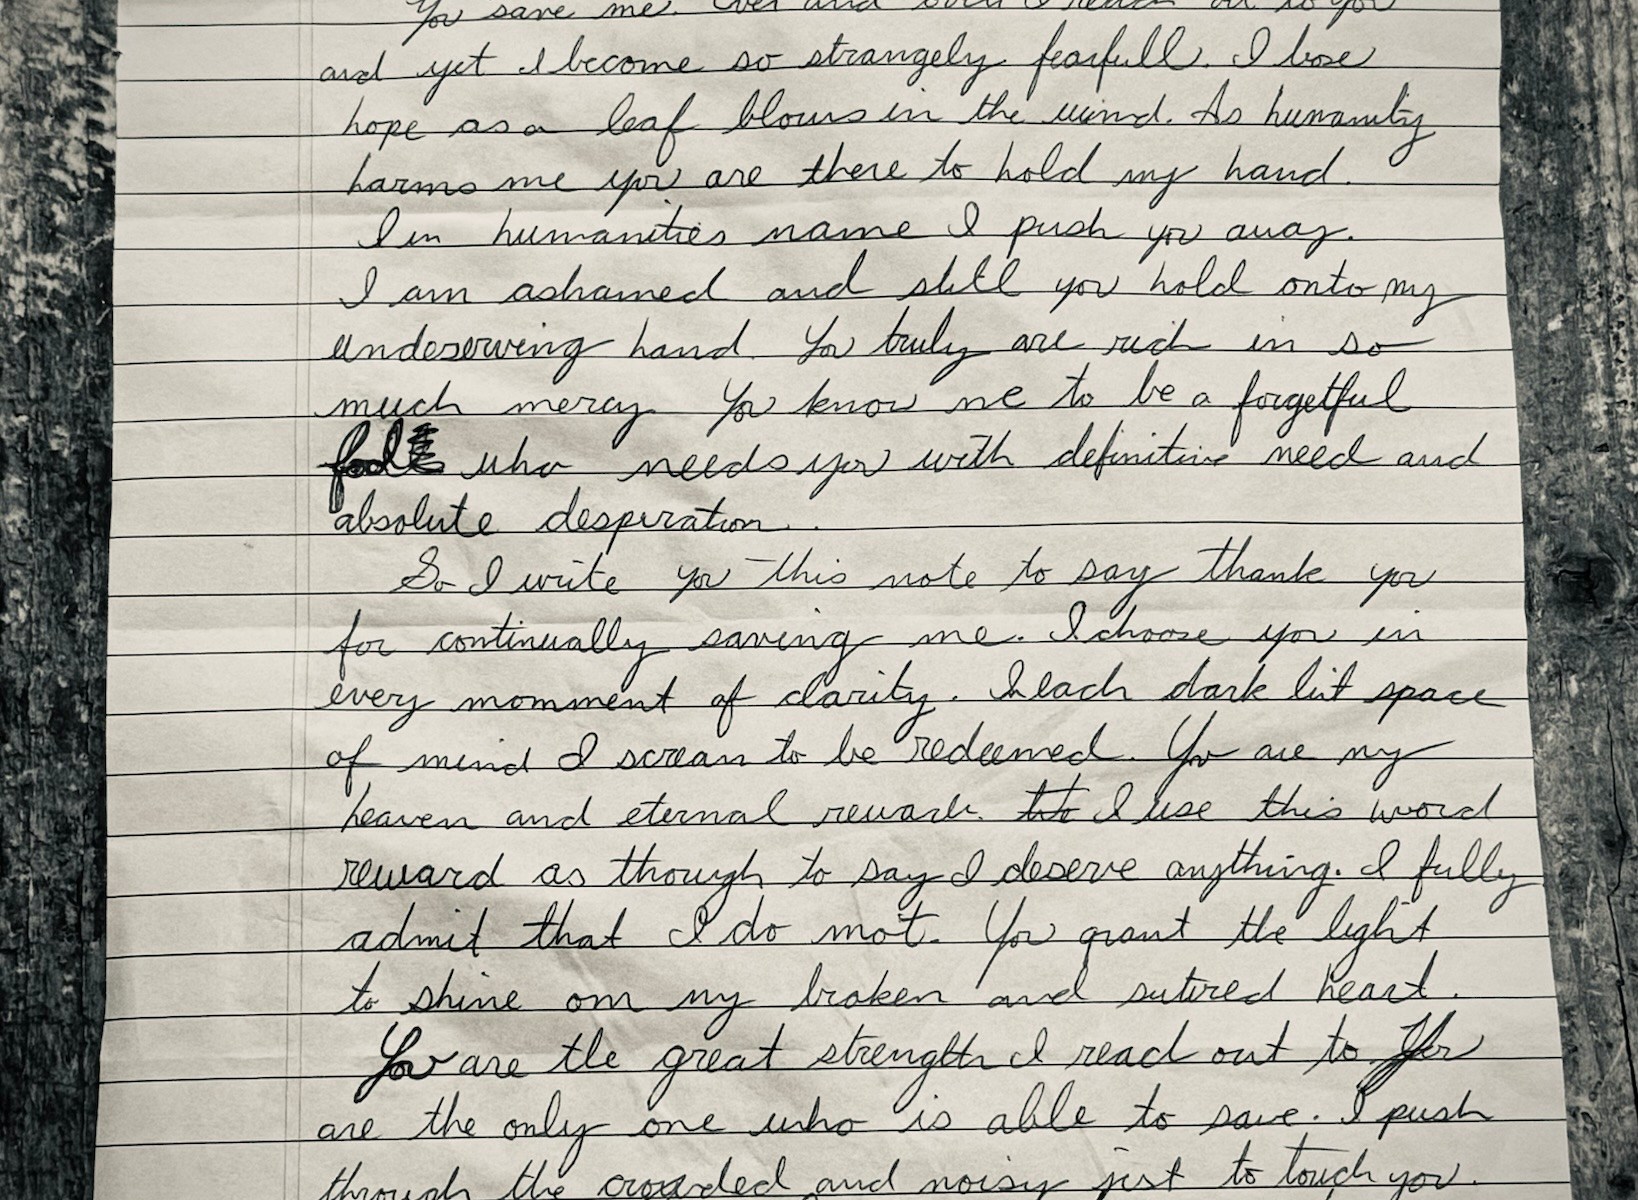 You save me. Ever and over I reach out to you
and yet I become so strangely fearfull. I lose
hope as a leaf blows in the wind. As humanity
harms me you are there to hold my hand.
I in humanities name I push you away.
I am ashamed and still you hold onto my
undeserving hand. You truly are rich in so
much mercy. You know me to be a forgetful
fool who needs you with definitive need and
absolute desperation.
So I write you this note to say thank you
for continually saving me. I choose you in
every momment of clarity. In each dark lit space
of mind I scream to be redeemed. You are my
heaven and eternal reward. I use this word
reward as though to say I deserve anything. I fully
admit that I do not. You grant the light
to shine on my broken and sutured heart.
You are the great strength I reach out to. You
are the only one who is able to save. I push
through the crowded and noisy just to touch you.